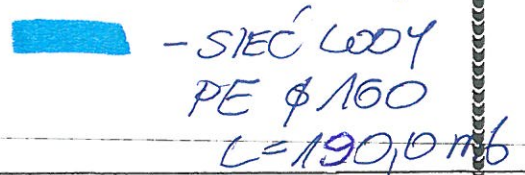 - SIEĆ WODY
PE ϕ 160
L=190,0 mb